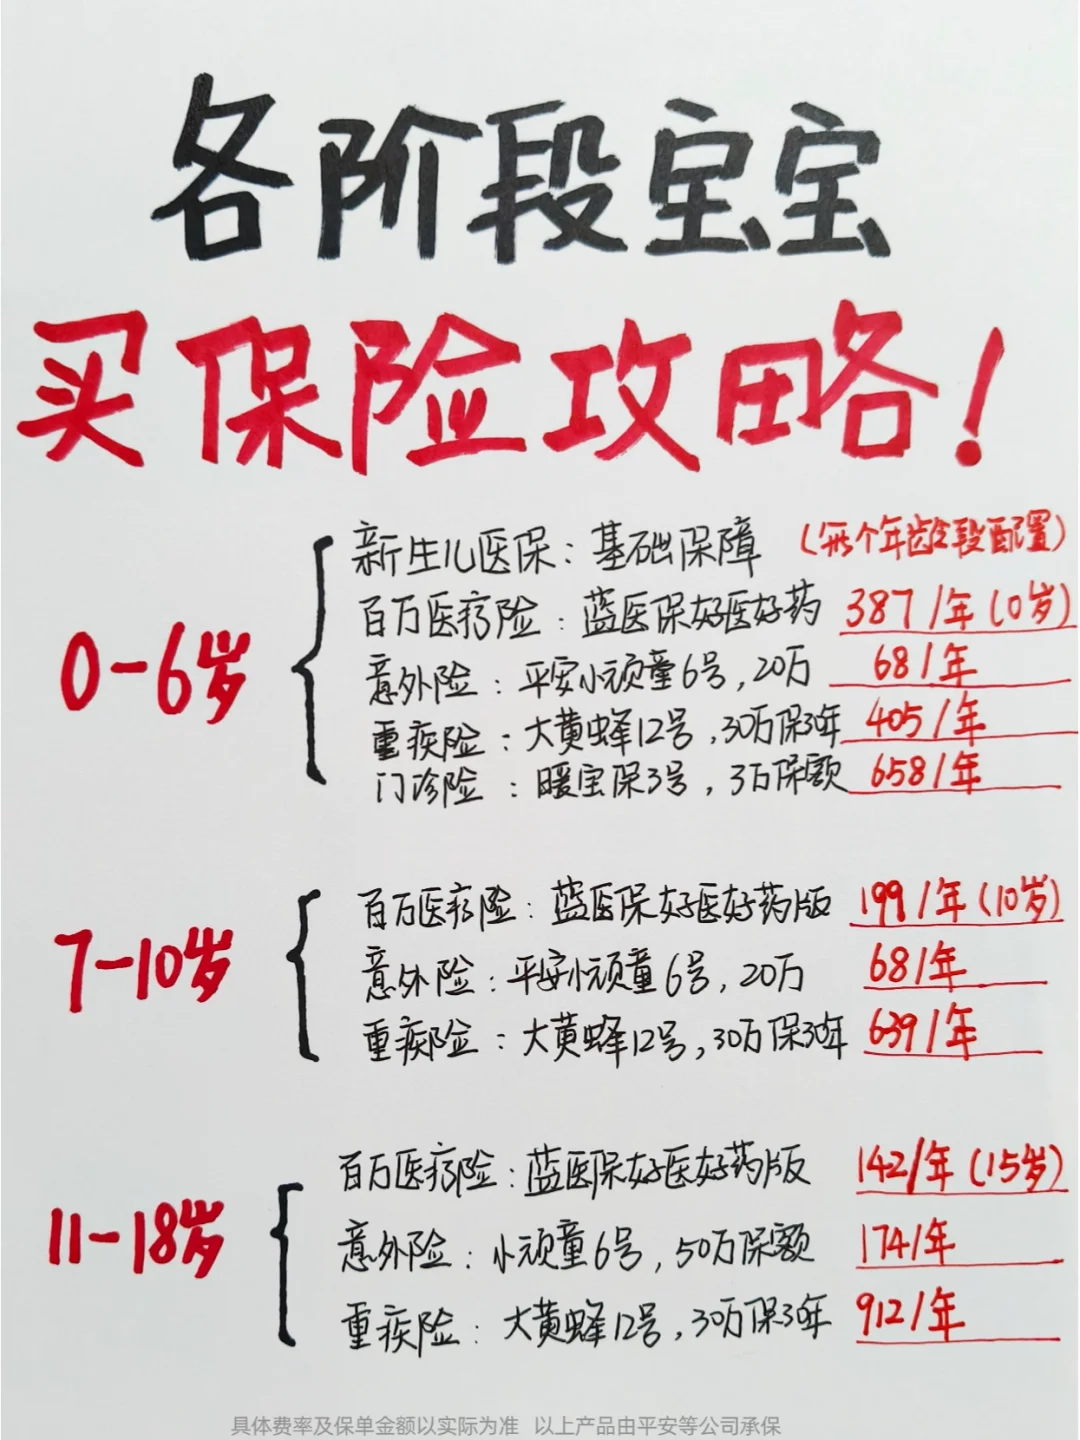 各阶段宝宝
买保险攻略！
0-6岁
新生儿医保：基础保障（每个年龄段配置）
百万医疗险：蓝医保好医好药 387/年（0岁）
意外险：平安小顽童6号，20万 68/年
重疾险：大黄蜂12号，30万保30年 405/年
门诊险：暖宝保3号，3万保额 658/年
7-10岁
百万医疗险：蓝医保好医好药版 199/年（10岁）
意外险：平安小顽童6号，20万 68/年
重疾险：大黄蜂12号，30万保30年 639/年
11-18岁
百万医疗险：蓝医保好医好药版 142/年（15岁）
意外险：小顽童6号，50万保额 174/年
重疾险：大黄蜂12号，30万保30年 912/年
具体费率及保单金额以实际为准 以上产品由平安等公司承保